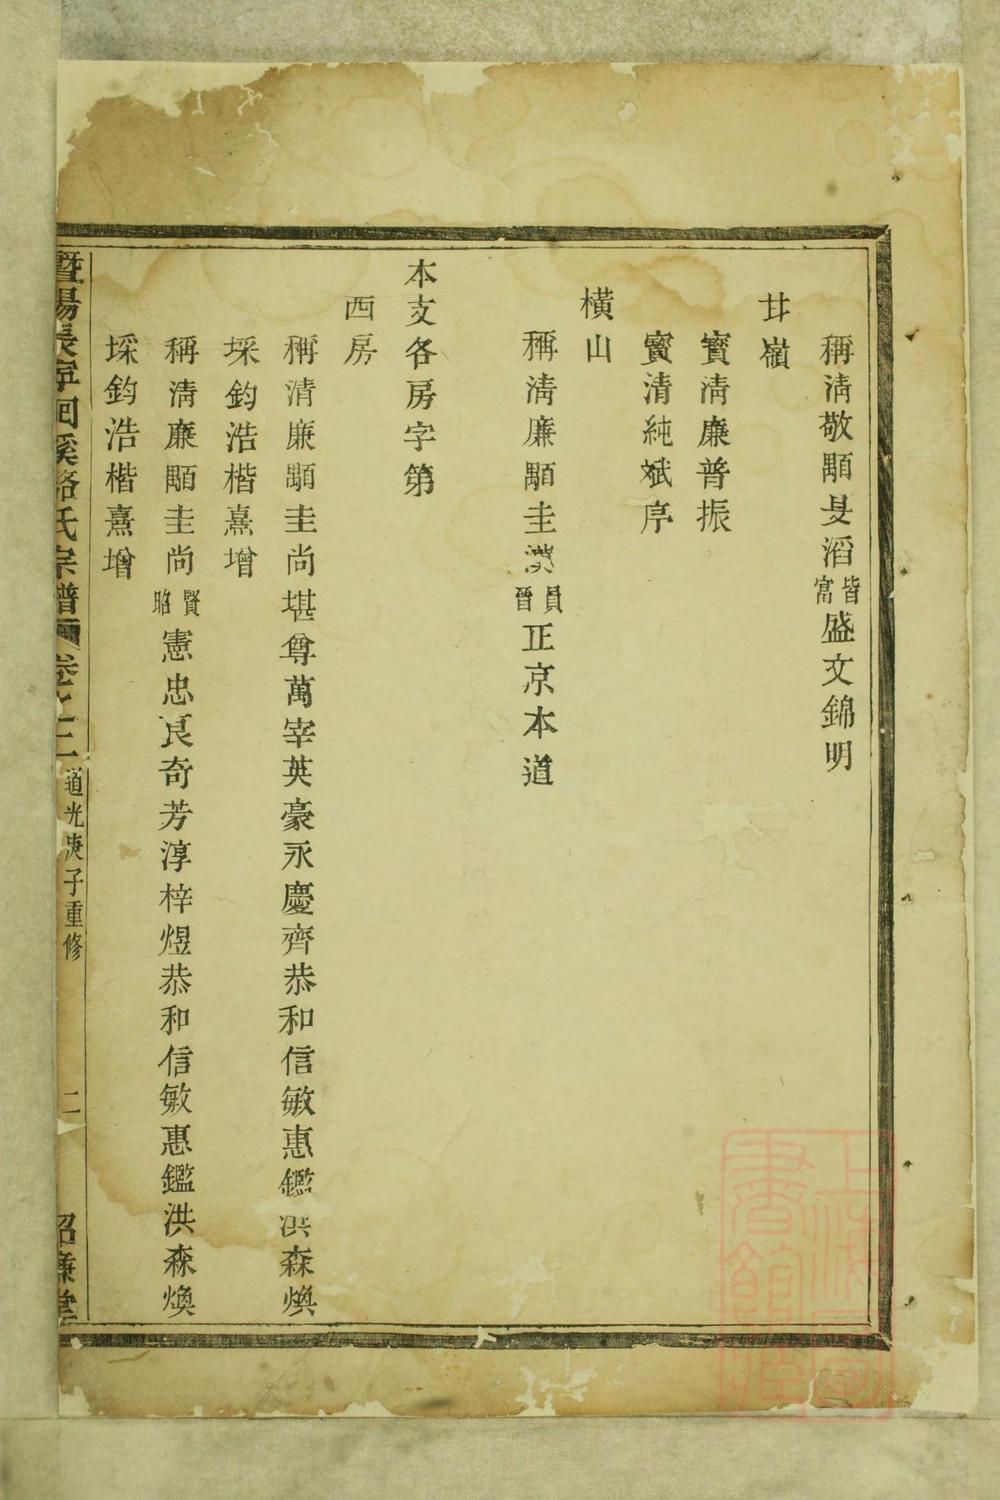 稱淸敬顒旻滔皆富盛文錦明
廿嶺
寳淸廉普振
寳清純斌序
橫山
稱淸廉顒圭漢員晉正京本道
本支各房字第
西房
稱清廉顒圭尚堪尊萬宰英豪永慶齊恭和信敏惠鑑洪森煥
埰鈞浩楷熹增
稱淸廉顒圭尚賢昭憲忠良奇芳淳梓煜恭和信敏惠鑑洪森煥
埰鈞浩楷熹增
暨陽長寧回溪駱氏宗譜 卷之二 道光庚子重修 二 紹廉堂
上海圖書館藏